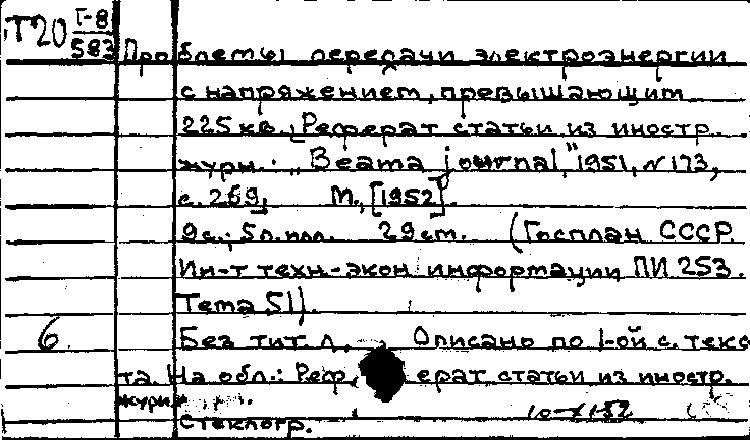 Т20 Г-8
583
Проблемы передачи электроэнергии
с напряжением, превышающим
225 кв., Реферат статьи из иностр.
журн.: „Beama journal," 1951, № 173,
с. 269. М., [1952].
9 с.; 5 л. илл. 29 см. (Госплан СССР
Ин-т техн-экон информации ПИ 253.
Тема 51).
6. Без тит л. Описано по 1-ой с. текс
та. На обл.: Реферат статьи из иностр.
журн.
Стеклогр.